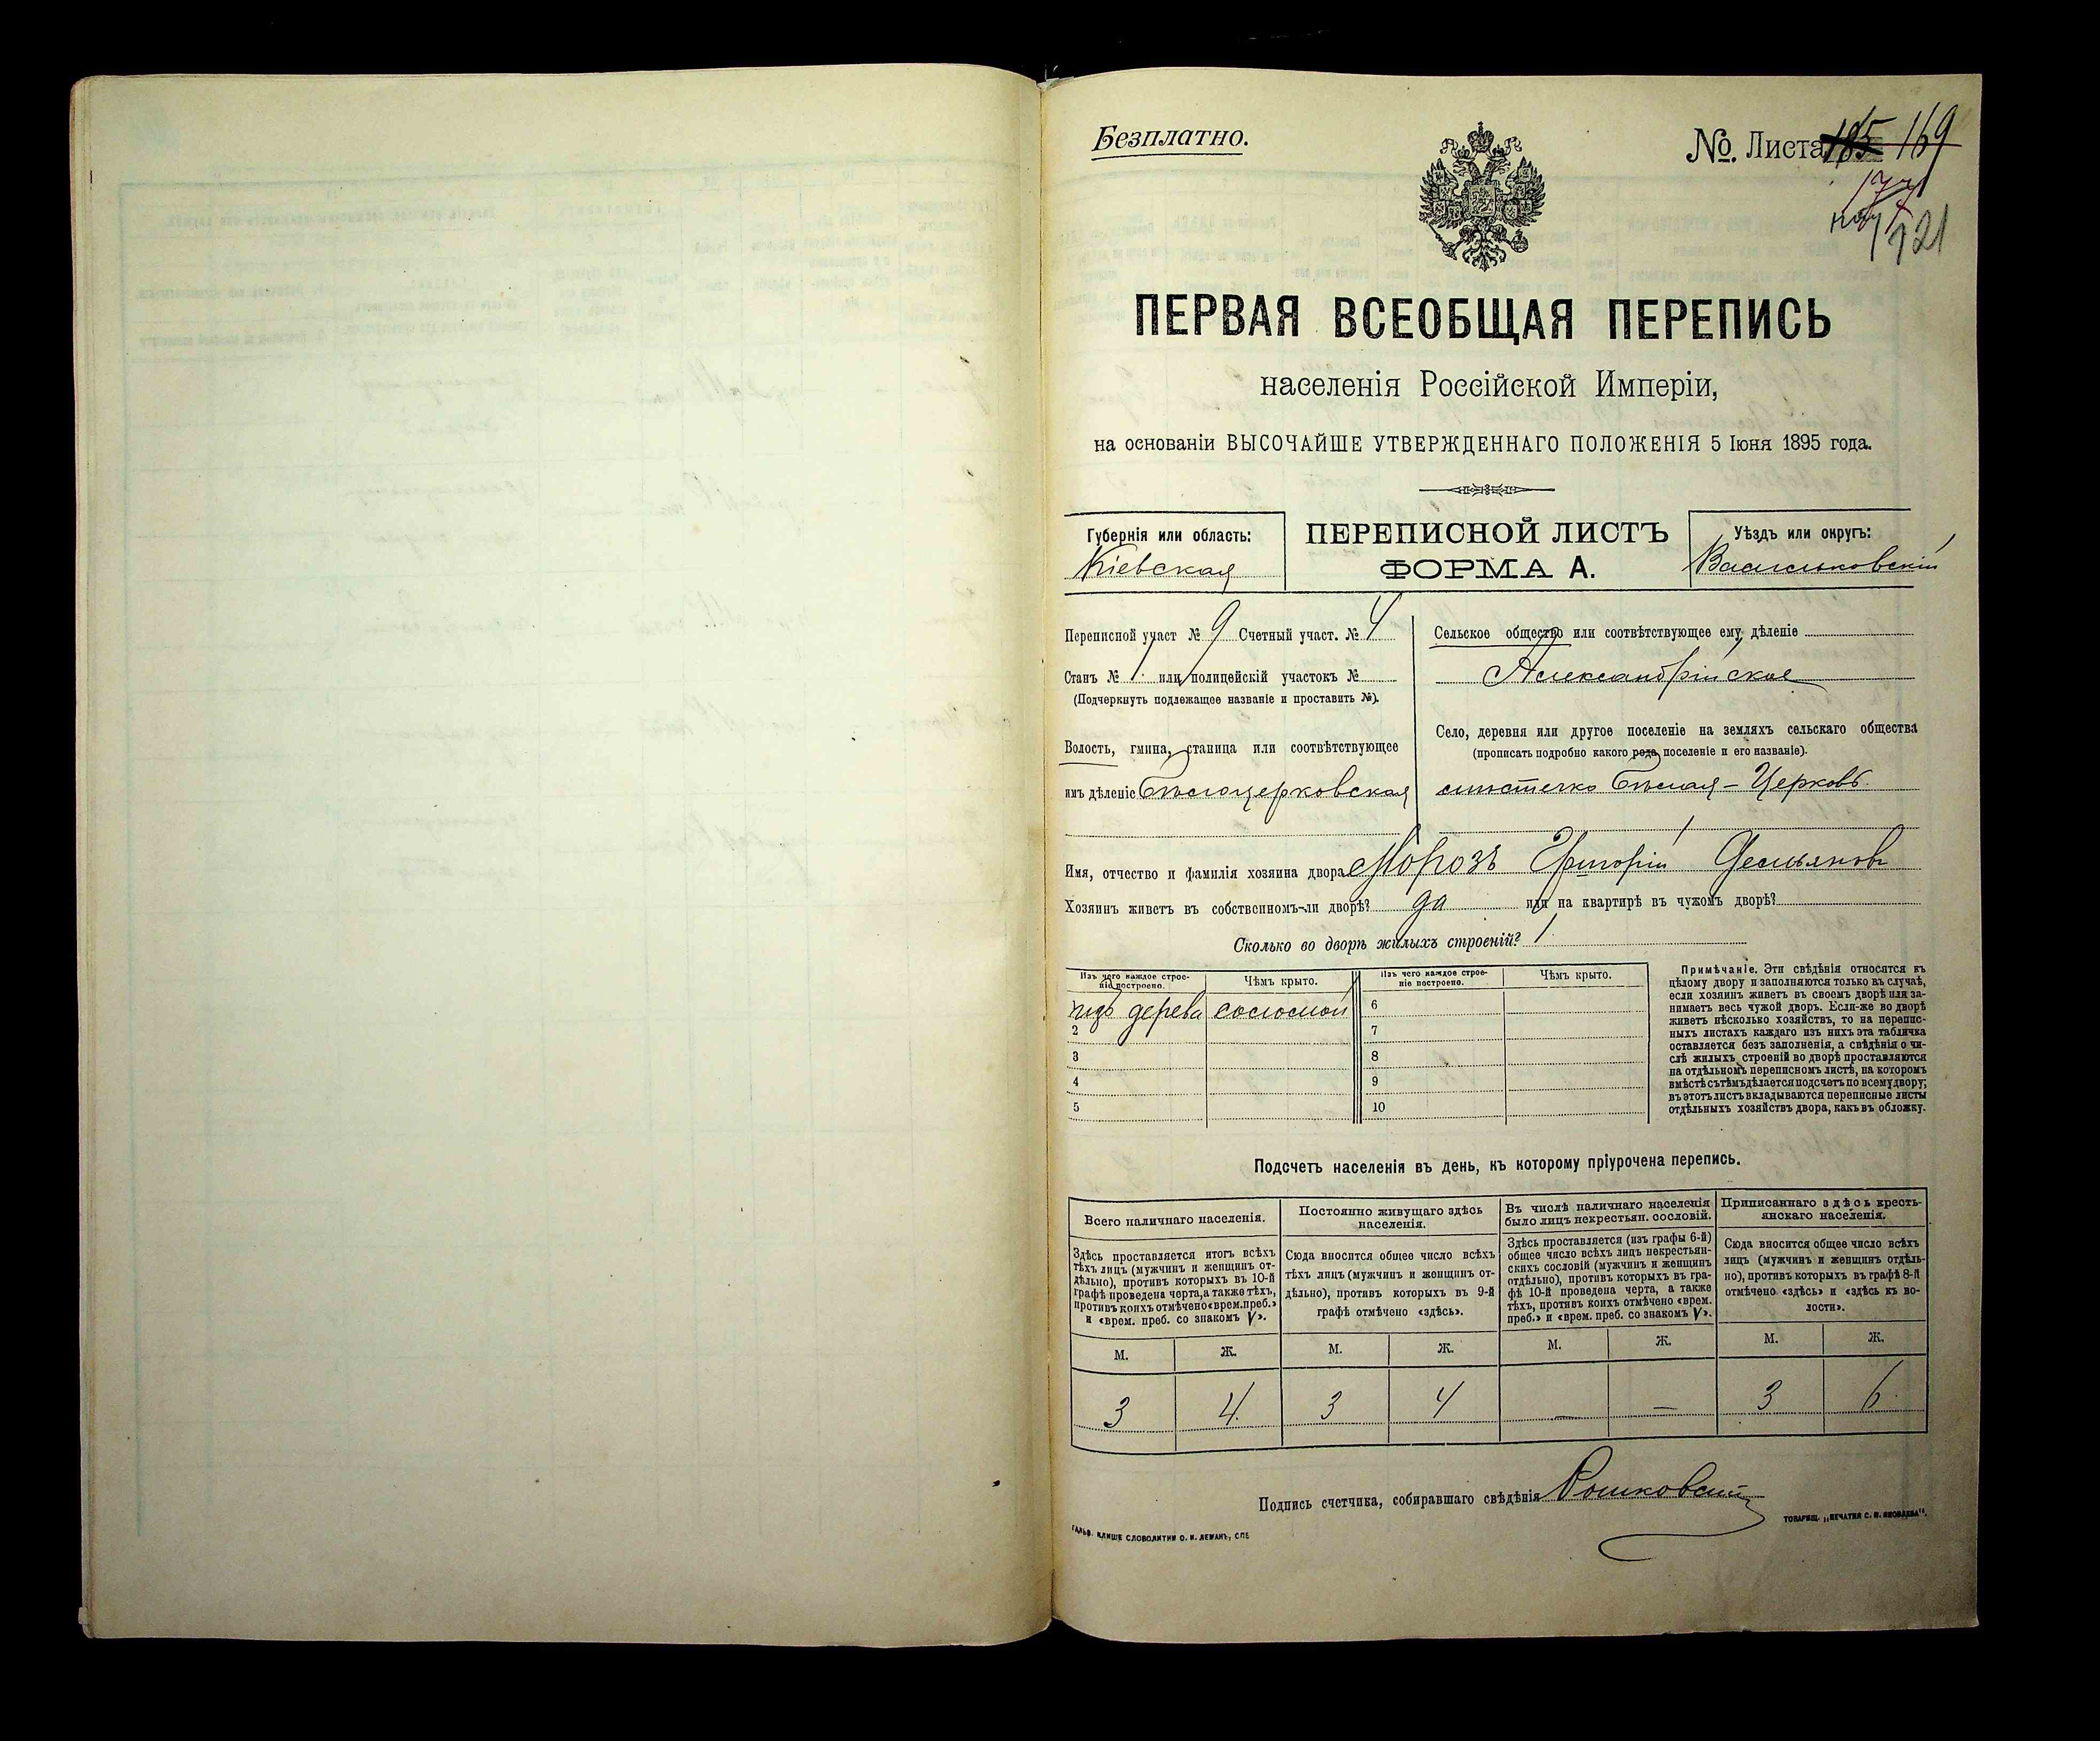 Безплатно.
№. Листа 185 169
177
121
ПЕРВАЯ ВСЕОБЩАЯ ПЕРЕПИСЬ
населенія Россійской Имперіи,
на основаніи ВЫСОЧАЙШЕ УТВЕРЖДЕННАГО ПОЛОЖЕНІЯ 5 Іюня 1895 года.
Губернія или область:
Кіевская
ПЕРЕПИСНОЙ ЛИСТЪ
ФОРМА А.
Уѣздъ или округъ:
Васильковскій
Переписной участ № 9 Счетный участ. № 4
Станъ № 1 или полицейскій участокъ №
(Подчеркнуть подлежащее названіе и проставить №).
Волость, гмина, станица или соотвѣтствующее
имъ дѣленіе Бѣлоцерковская
Сельское общество или соотвѣтствующее ему дѣленіе
Александрійское
Село, деревня или другое поселеніе на земляхъ сельскаго общества
(прописать подробно какого рода поселеніе и его названіе).
мѣстечко Бѣлая-Церковь.
Имя, отчество и фамилія хозяина двора Морозъ Григорій Демьяновъ
Хозяинъ живетъ въ собственномъ-ли дворѣ? да или на квартирѣ въ чужомъ дворѣ?
Сколько во дворѣ жилыхъ строеній? 1
Изъ чего каждое строе-
ніе построено.
Чѣмъ крыто.
Изъ чего каждое строе-
ніе построено.
Чѣмъ крыто.
изъ дерева соломой 6
2 7
3 8
4 9
5 10
Примѣчаніе. Эти свѣдѣнія относятся къ
цѣлому двору и заполняются только въ случаѣ,
если хозяинъ живетъ въ своемъ дворѣ или за-
нимаетъ весь чужой дворъ. Если-же во дворѣ
живетъ нѣсколько хозяйствъ, то на перепис-
ныхъ листахъ каждаго изъ нихъ эта табличка
оставляется безъ заполненія, а свѣдѣнія о чи-
слѣ жилыхъ строеній во дворѣ проставляются
на отдѣльномъ переписномъ листѣ, на которомъ
вмѣстѣ съ тѣмъ дѣлается подсчетъ по всему двору;
въ этотъ листъ вкладываются переписные листы
отдѣльныхъ хозяйствъ двора, какъ въ обложку.
Подсчетъ населенія въ день, къ которому пріурочена перепись.
Всего наличнаго населенія.
Здѣсь проставляется итогъ всѣхъ
тѣхъ лицъ (мужчинъ и женщинъ от-
дѣльно), противъ которыхъ въ 10-й
графѣ проведена черта, а также тѣхъ,
противъ коихъ отмѣчено «врем. преб.»
и «врем. преб. со знакомъ V».
Постоянно живущаго здѣсь
населенія.
Сюда вносится общее число всѣхъ
тѣхъ лицъ (мужчинъ и женщинъ от-
дѣльно), противъ которыхъ въ 9-й
графѣ отмѣчено «здѣсь».
Въ числѣ наличнаго населенія
было лицъ некрестьян. сословій.
Здѣсь проставляется (изъ графы 6-й)
общее число всѣхъ лицъ некрестьян-
скихъ сословій (мужчинъ и женщинъ
отдѣльно), противъ которыхъ въ гра-
фѣ 10-й проведена черта, а также
тѣхъ, противъ коихъ отмѣчено «врем.
преб.» и «врем. преб. со знакомъ V».
Приписаннаго здѣсь кресть-
янскаго населенія.
Сюда вносится общее число всѣхъ
лицъ (мужчинъ и женщинъ отдѣль-
но), противъ которыхъ въ графѣ 8-й
отмѣчено «здѣсь» и «здѣсь къ во-
лости».
М. Ж. М. Ж. М. Ж. М. Ж.
3 4 3 4 — — 3 6
Подпись счетчика, собиравшаго свѣдѣнія Рошковскій
ГАЛЬВ. КЛИШЕ СЛОВОЛИТНИ О. И. ЛЕМАНЪ, СПБ
ТОВАРИЩ. „ПЕЧАТНЯ С. П. ЯКОВЛЕВА“.